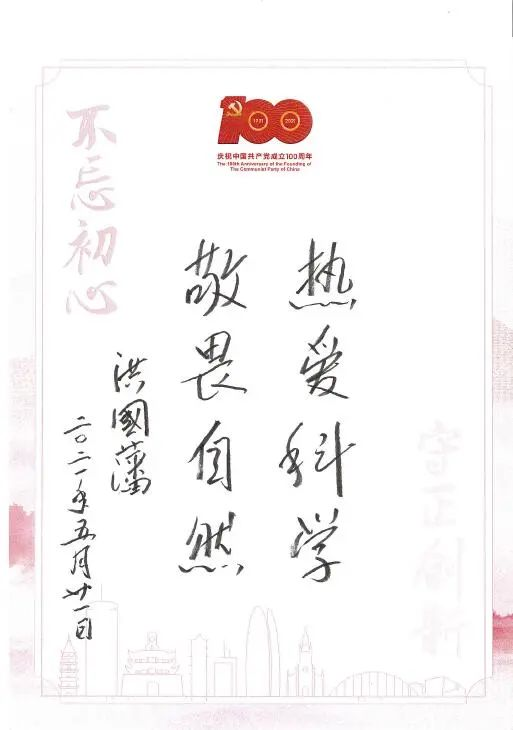 1921
2021
庆祝中国共产党成立100周年
The 100th Anniversary of the Founding of
The Communist Party of China
热爱科学
敬畏自然
洪國藩
二〇二一年五月廿一日
不忘初心
守正创新